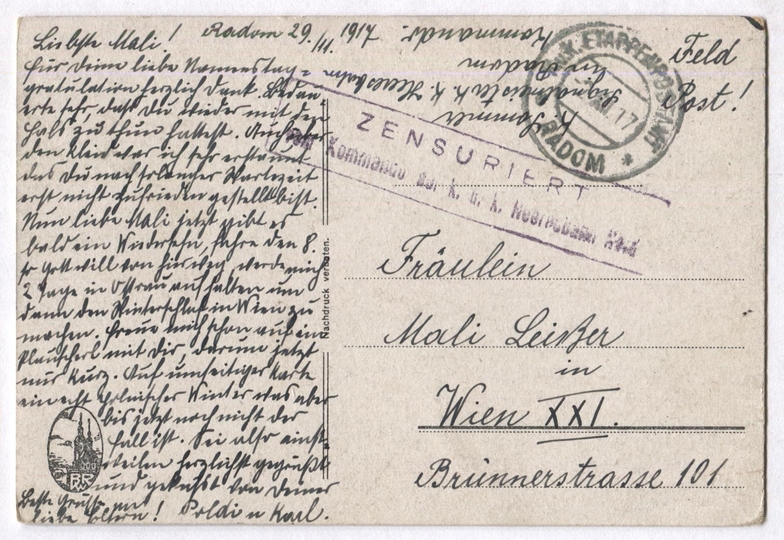 Liebste Mali! Radom 29./11. 1917
für Deine liebe Namenstag=
gratulation herzlich Dank. Bedau
erte sehr, daß Du wieder mit dem
Hals zu thun hattest. Auch über
den Kleid war ich sehr erstaunt
das Du nach so langer Wartezeit
erst nicht zufrieden gestellt bist.
Nun liebe Mali jetzt gibt es
bald ein Wiedersehn, fahre den 8.
so Gott will von hier weg, werde mich
2 Tage in Ostrau aufhalten um
dann den Winterschlaf in Wien zu
machen. Freue mich schon auf ein
Plauscherl mit Dir, darum jetzt
nur kurz. Auf umseitiger Karte
ein echt polnischer Winter was aber
bis jetzt noch nicht der
Fall ist. Sei also einst-
weilen herzlichst gegrüßt
und geküsst von Deiner
Poldi u Karl.
Beste Grüße
liebe Eltern!
K. Sommer
Signalmeister k. k. Heeresbahn
Kommando
in Radom
Feld
Post!
K. u. K. ETAPPENPOSTAMT
XII. 17
RADOM *
ZENSURIERT
Kommando der k. u. k. Heeresbahn Nord
Nachdruck verboten.
Fräulein
Mali Leißer
in
Wien XXI.
Brünnerstrasse 101